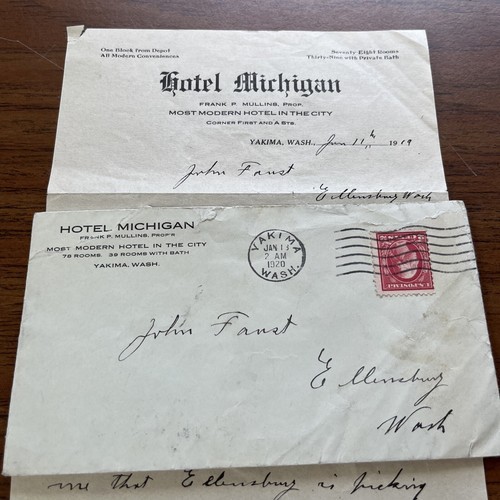 One Block from Depot
All Modern Conveniences
Seventy Eight Rooms
Thirty-Nine with Private Bath
Hotel Michigan
FRANK P. MULLINS, PROP.
MOST MODERN HOTEL IN THE CITY
CORNER FIRST AND A STS.
YAKIMA, WASH., Jan 11th 1919
John Faust
Ellensburg Wash
HOTEL MICHIGAN
FRANK P. MULLINS, PROP'R
MOST MODERN HOTEL IN THE CITY
78 ROOMS. 39 ROOMS WITH BATH
YAKIMA, WASH.
YAKIMA
JAN 13
2 AM
1920
WASH.
John Faust
Ellensburg
Wash
me that Ellensburg is picking